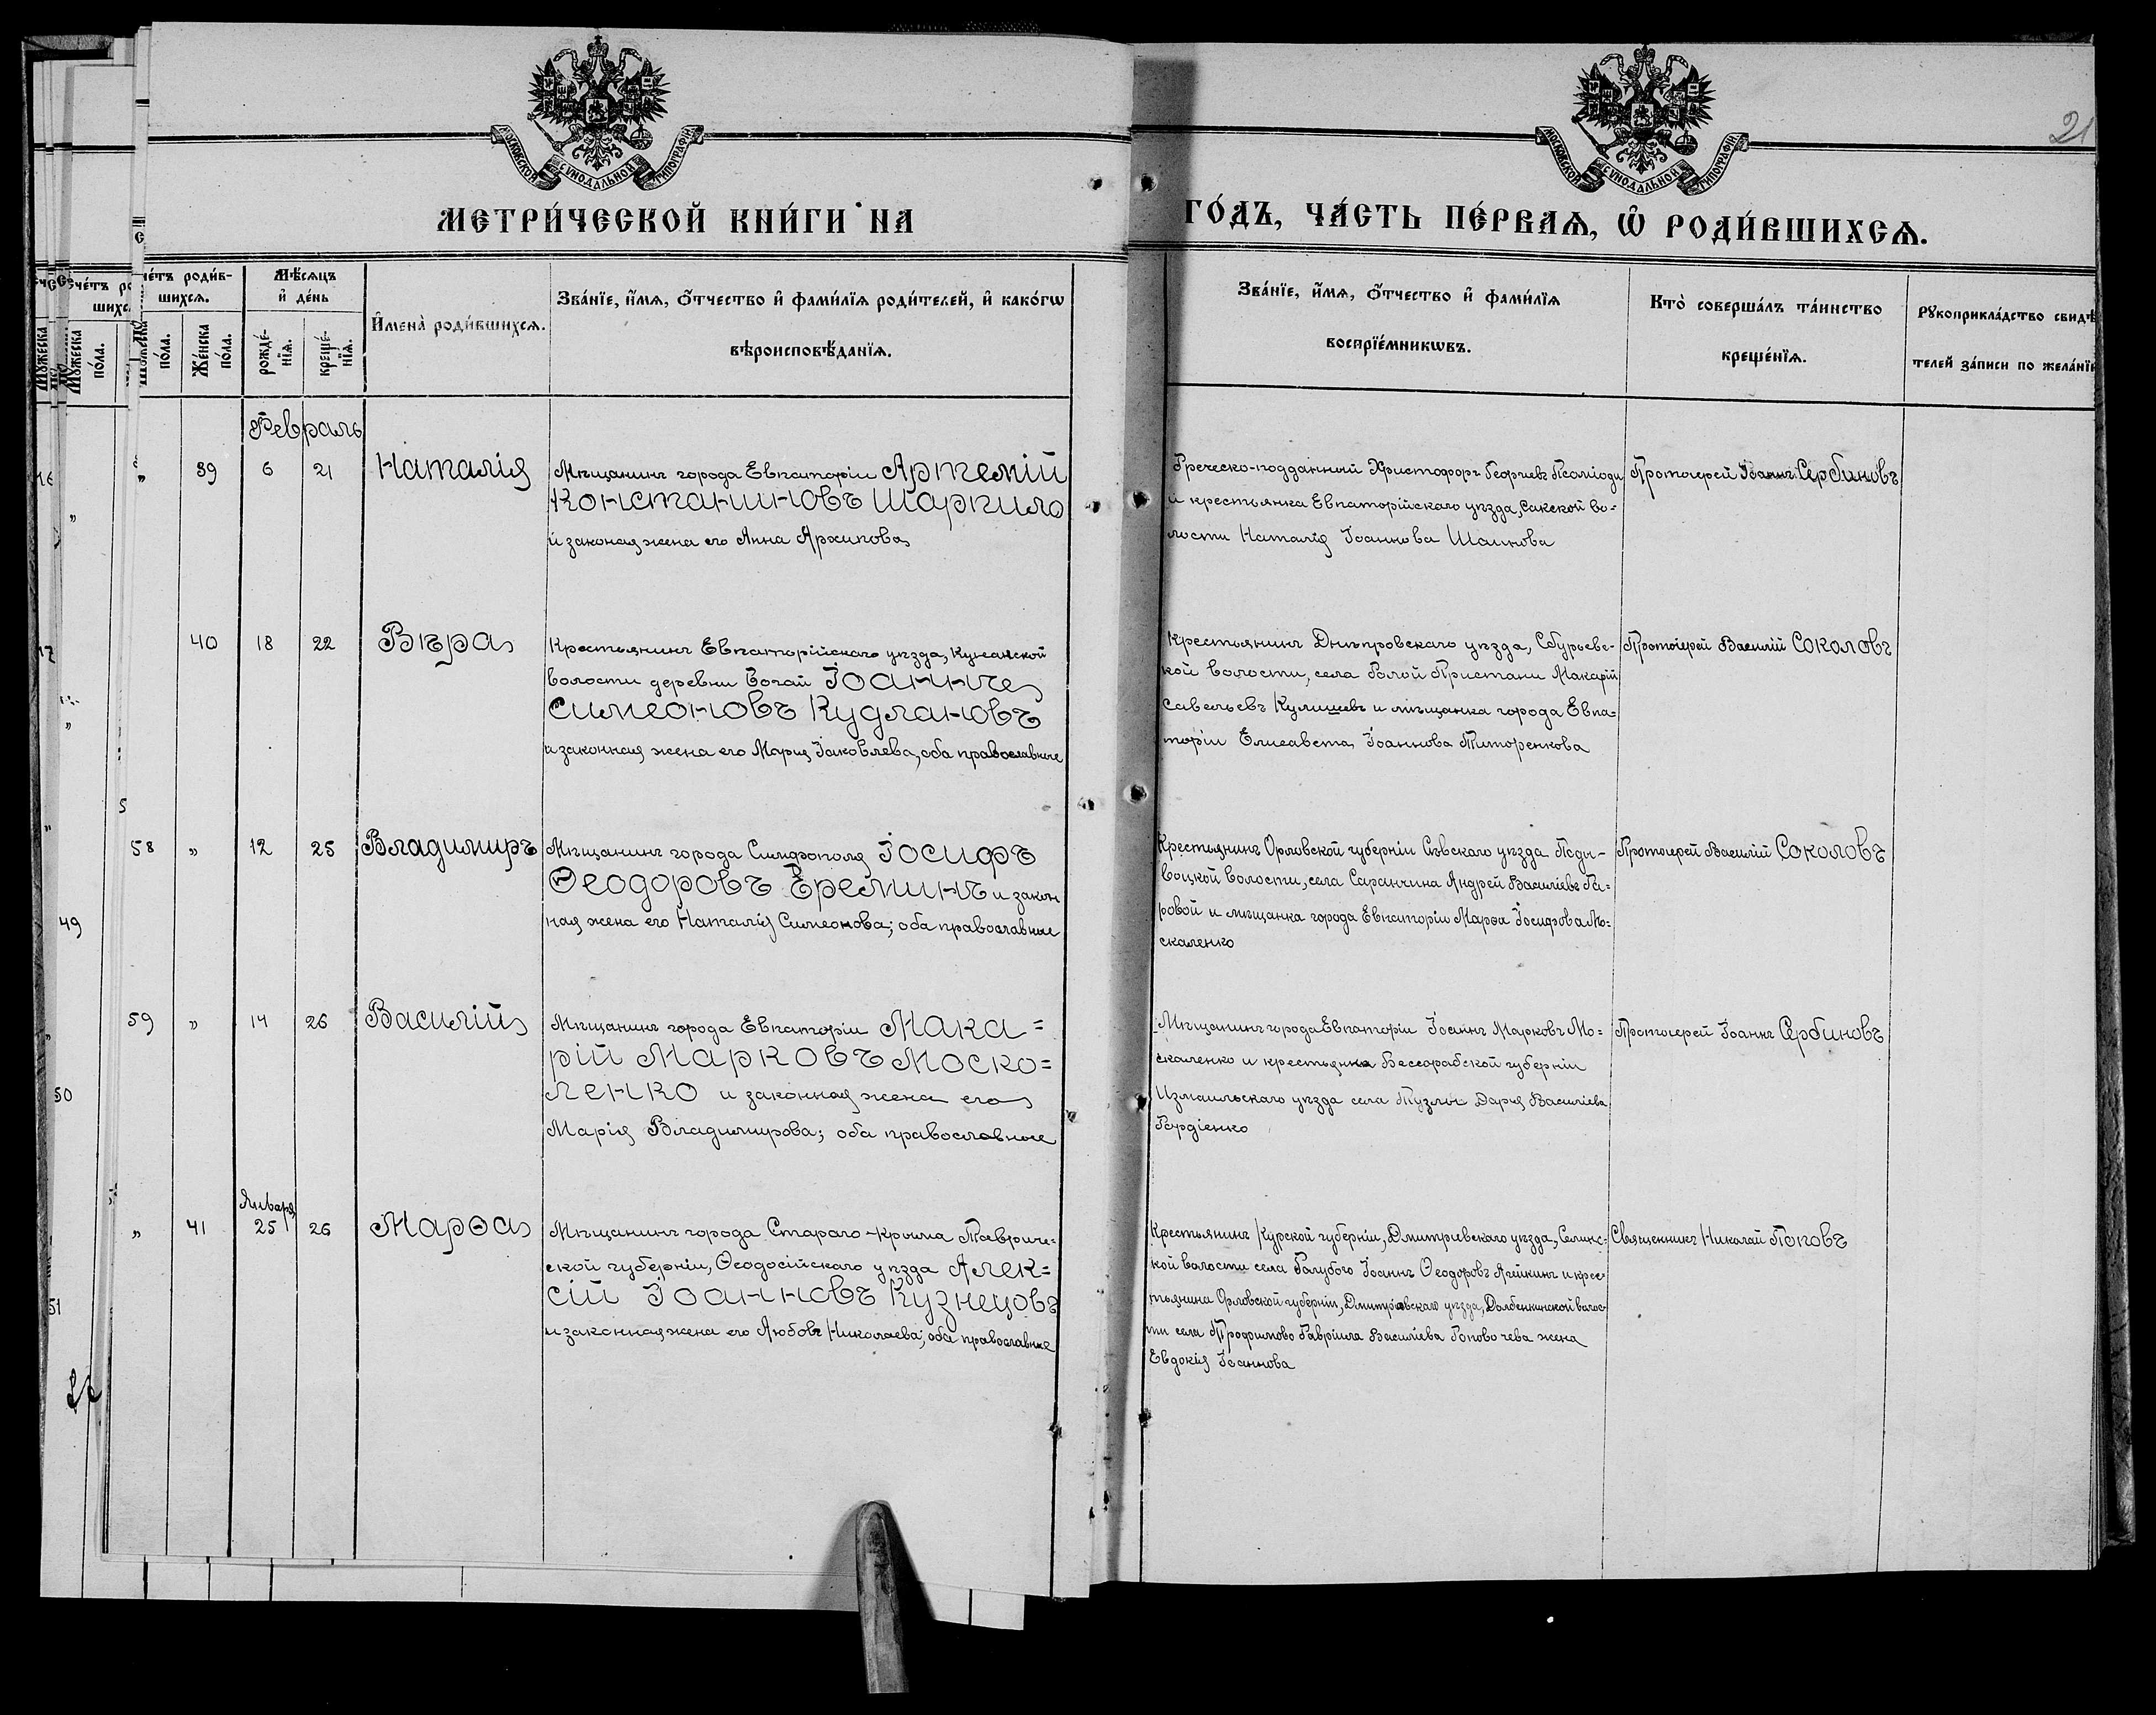 МОСКОВСКОЙ СѴНОДАЛЬНОЙ ТИПОГРАФІИ
МОСКОВСКОЙ СѴНОДАЛЬНОЙ ТИПОГРАФІИ
21
МЕТРИ́ЧЕСКОЙ КНИ́ГИ НА
ГО́ДЪ, ЧА́СТЬ ПЕ́РВАѦ, Ѡ҆ РОДИ́ВШИХСѦ.
че́тъ роди́в-
шихсѧ.
Мѣ́сѧцъ
и҆ де́нь
по́ла.
Же́нска
по́ла.
рожде́-
нїѧ.
креще́-
нїѧ.
И҆мена̀ роди́вшихсѧ.
Зва́нїе, и҆́мѧ, ѻ҆́тчество и҆ фами́лїѧ роди́телей, и҆ како́гѡ
вѣроисповѣ́данїѧ.
Зва́нїе, и҆́мѧ, ѻ҆́тчество и҆ фами́лїѧ
воспрїе́мникѡвъ.
Кто̀ соверша́лъ та́инство
креще́нїѧ.
Рꙋкоприкла́дство свидѣ
телей за́писи по жела́нїю
Февраль
„ 39 6 21 Наталія
Мѣщанинъ города Евпаторіи Артемій
Константиновъ Шаркило
и законая жена его Анна Архипова
Греческо-подданный Христофоръ Георгіевъ
и крестьянка Евпаторійскаго уѣзда, Сакской во=
лости Наталія Іоаннова Шаинова
Протоіерей Іоаннъ Сербиновъ
40 18 22 Вѣра
Крестьянинъ Евпаторійскаго уѣзда, Кунанской
волости деревни Богай Іоаннъ
Симеоновъ Кудлановъ
и законная жена его Марія Іаковлева, оба православные
Крестьянинъ Днѣпровскаго уѣзда, Сбурьевс-
кой волости, села Голой Пристани Макарій
Савельевъ Кулишевъ и мѣщанка города Евпа=
торіи Елисавета Іоаннова Титоренкова
Протоіерей Василій Соколовъ
58 „ 12 25 Владимиръ
Мѣщанинъ города Симферополя Іосифъ
Ѳеодоровъ Ереминъ и закон
ная жена его Наталія Симеонова; оба православные
Крестьянинъ Орловской губерніи Сѣвскаго уѣзда Поды-
воцкой волости, села Саранчина Андрей Василіевъ Ги=
ровой и мѣщанка города Евпаторіи Марѳа Іосифова Мо=
скаленко
Протоіерей Василій Соколовъ
59 „ 14 26 Василій
Мѣщанинъ города Евпаторіи Мака=
рій Марковъ Моско=
ленко и законная жена его
Марія Владимирова; оба православные
Мѣщанинъ города Евпаторіи Іоаннъ Марковъ Мо=
скаленко и крестьянка Бессарабской губерніи
Измаильскаго уѣзда села Тузлы Дарія Василіева
Гордіенко
Протоіерей Іоаннъ Сербиновъ
Января
„ 41 25 26 Марѳа
Мѣщанинъ города Стараго-Крыма Тавриче=
ской губерніи, Ѳеодосійскаго уѣзда Алек=
сій Іоанновъ Кузнецовъ
и законная жена его Любовь Николаева; оба православные
Крестьянинъ Курской губерніи, Дмитріевскаго уѣзда, Селинс-
кой волости села Голубого Іоаннъ Ѳеодоровъ Агейкинъ и крес-
тьянина Орловской губерніи, Дмитровскаго уѣзда, Долбенкинской волос-
ти села Трофимово Гавріила Василіева жена
Евдокія Іоаннова
Священникъ Николай Поповъ
49
50
51